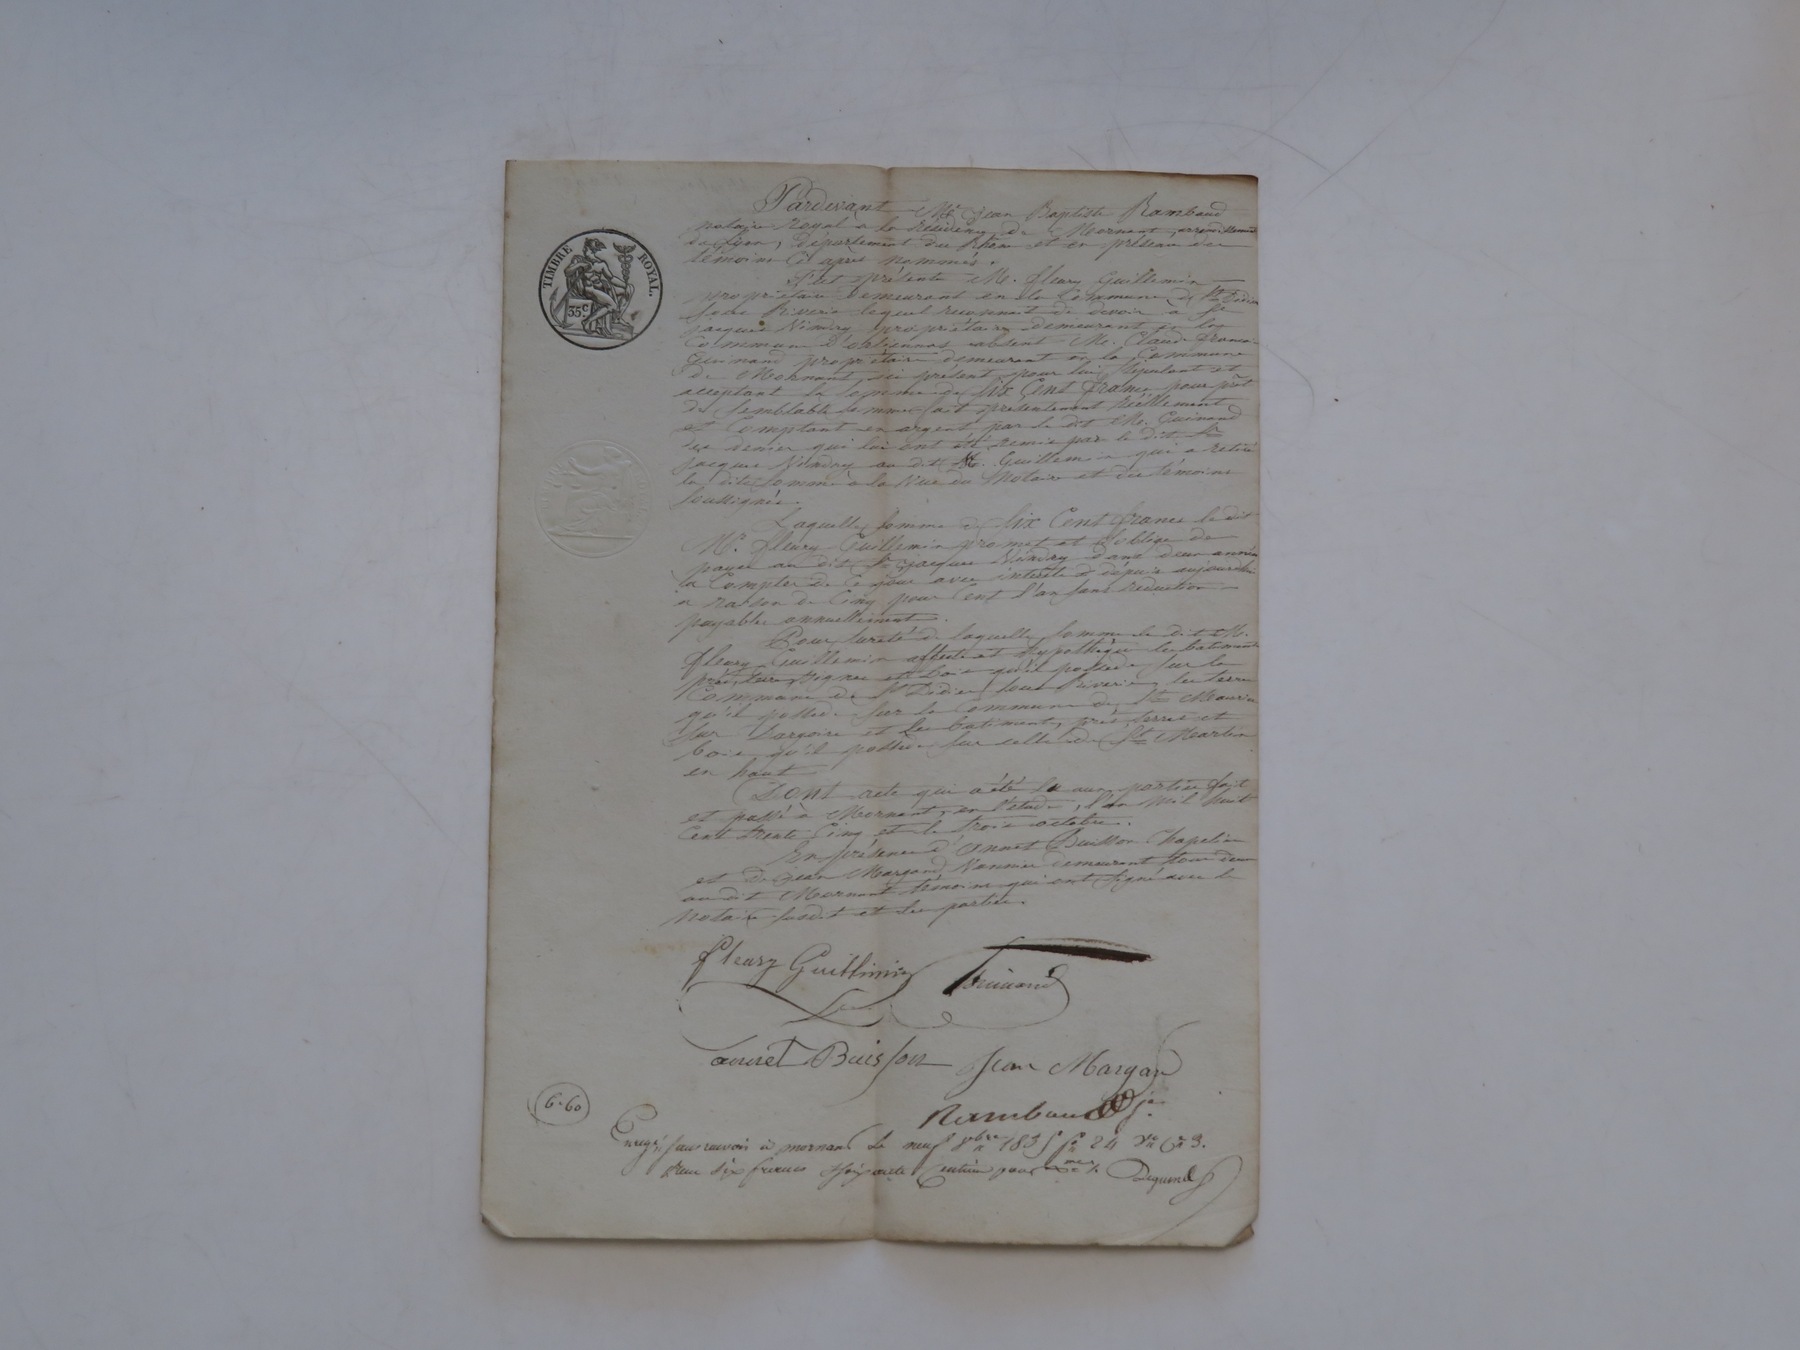 Pardevant Me Jean Baptiste Rambaud
notaire Royal a la résidence de Mornant, arrondissement
de Lyon, département du Rhône et en présence des
témoins ci après nommés.
Fut présent M. fleury Guillemin
propriétaire demeurant en la Commune de St Didier
sous Riverie lequel reconnait de devoir a Sr
jacques Vindry propriétaire demeurant en la
Commune d'orliennas absent M. Claude françois
Guinand propriétaire demeurant en la Commune
de Mornant, ici présent pour lui stipulant et
acceptant la somme de Six Cent francs pour prêt
de semblable somme fait présentement réellement
et Comptant en argent par le dit M. Guinand
des denier qui lui ont été remis par le dit Sr
jacques Vindry au dit M. Guillemin qui a retiré
la dite somme a la Vue du Notaire et des témoins
soussignés.
Laquelle somme de Six Cent francs le dit
Mr. fleury Guillemin promet et s'oblige de
payer au dit Sr jacques Vindry dans deux années
a Compter de Ce jour avec intérêts depuis aujourdhui
a raison de Cinq pour Cent l'an sans reduction
payable annuellement.
Pour sureté de laquelle somme le dit M.
fleury Guillemin affecte et hypothèque les batiments
prés, terres, vignes et bois qu'il possède sur la
Commune de St Didier sous Riverie, les terres
qu'il possède sur la Commune de St Maurice
sur Dargoire et les batiments, prés, terres et
bois qu'il possède sur celle de St Martin
en haut
Dont acte qui a été lu aux parties fait
et passé a Mornant, en l'étude, l'an Mil huit
Cent trente Cinq et le trois octobre.
En présence d'annet Buisson Chapelier
et de jean Margand Vannier demeurant tous deux
au dit Mornant témoins qui ont signé avec le
Notaire susdit et les parties.
fleury Guillimin Guinand
annet Buisson Jean Margan
Rambaud
6.60
Enregé sans renvois à mornant le neuf 8bre 1835 fo 24 Vo Ce 3.
Reçu six francs soixante Centimes pour
TIMBRE ROYAL.
35 c.